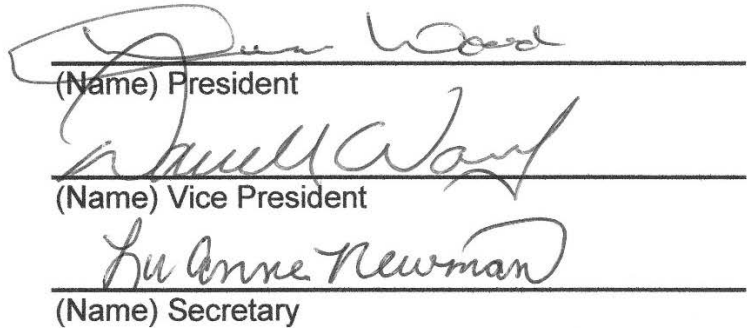 Wood
(Name) President
(Name) Vice President
Lu Anne Newman
(Name) Secretary